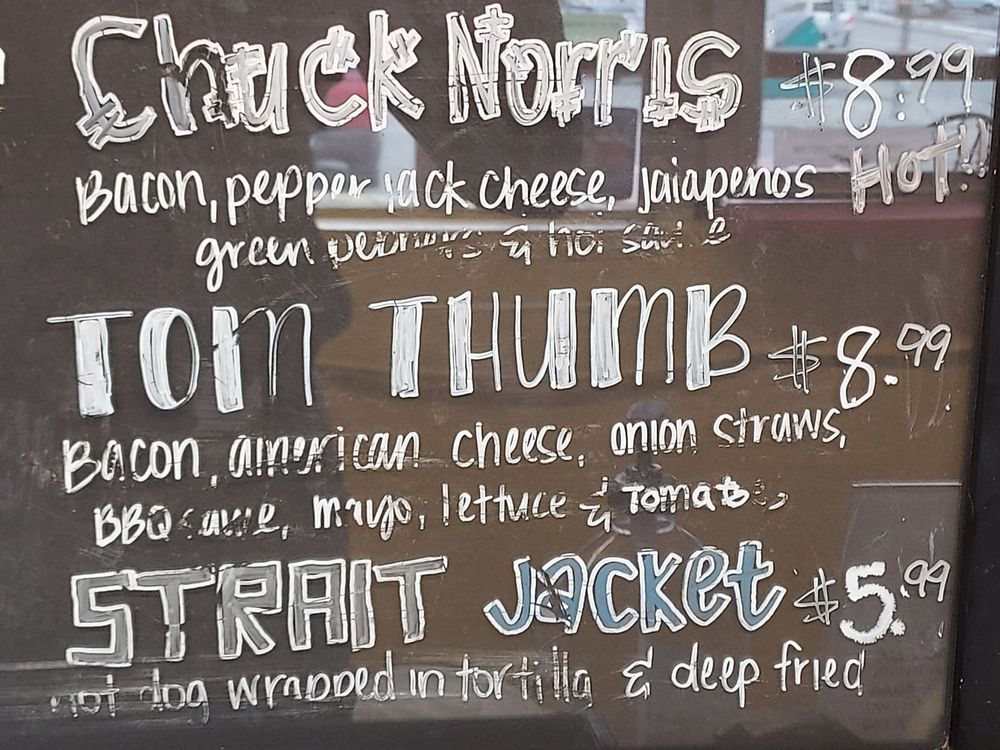 Chuck Norris $8.99
Bacon, pepper jack cheese, jalapenos HOT!!
green peppers & hot sauce
TOM THUMB $8.99
Bacon, american cheese, onion straws,
BBQ sauce, mayo, lettuce & Tomatoes
STRAIT JACKET $5.99
hot dog wrapped in tortilla & deep fried